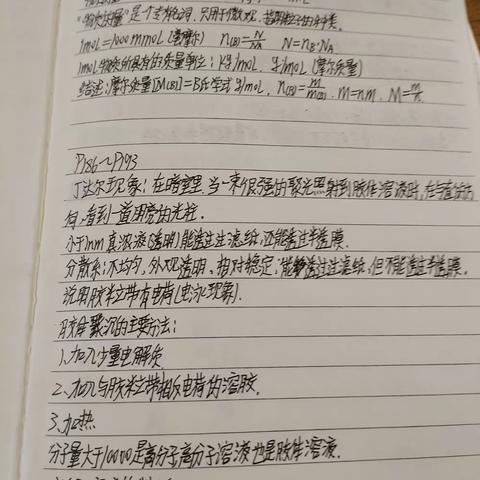 "物质的量"是一个专有名词,只用于微观,指明粒子的种类。
1mol=1000mmol(毫摩尔) n(B)=N/NA N=nB·NA
1mol物质所具有的质量单位:kg/mol、g/mol(摩尔质量)
总结:摩尔质量[M(B)]=B化学式 g/mol, n(B)=m/m(B), m=nm, M=m/n.
P186~P193
丁达尔现象:在暗室里,当一束很强的聚光照射到胶体溶液时,在与直的方
向,看到一道明亮的光柱.
小于1nm真溶液(透明)能透过过滤纸,还能透过半透膜.
分散系:不均匀,外观透明,相对稳定,能够透过过滤纸,但不能透过半透膜.
说明胶粒带有电荷(电泳现象).
胶体聚沉的主要方法:
1、加入少量电解质
2、加入与胶粒带相反电荷的溶胶.
3、加热
分子量大于10000是高分子高分子溶液也是胶体溶液.